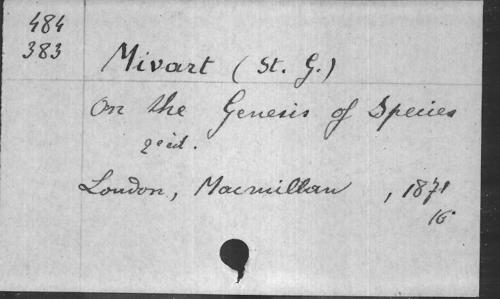 484
383
Mivart (St. G.)
On the Genesis of Species
2e éd.
London, Macmillan, 1871
16°